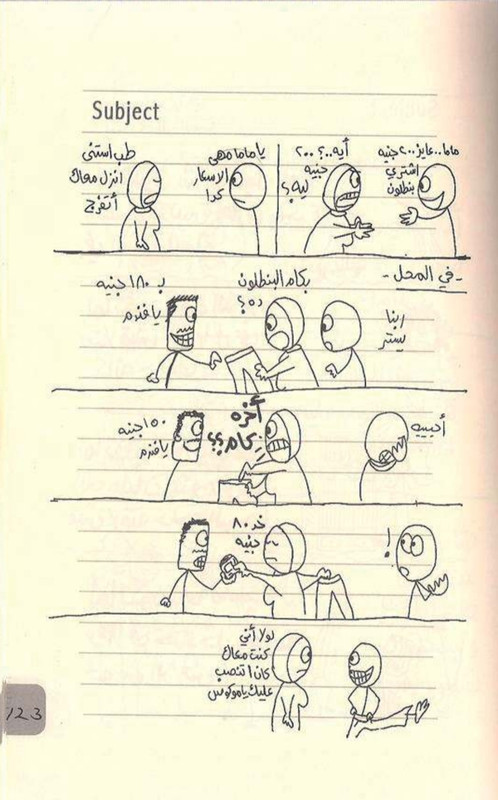 Subject
ماما..عايز ٢٠٠ جنيه
اشتري
بنطلون
أيه..؟ ٢٠٠
جنيه
ليه؟
يا ماما ماهي
الاسعار
كدا
طب استنى
انزل معاك
أتفرج
- في المحل -
ربنا
يستر
بكام البنطلون
ده؟
بـ ١٨٠ جنيه
يا فندم
أحييه
أخره
بكام؟؟
١٥٠ جنيه
يا فندم
!
خد ٨٠
جنيه
لولا أني
كنت معاك
كان اتنصب
عليك يا موكوس
123